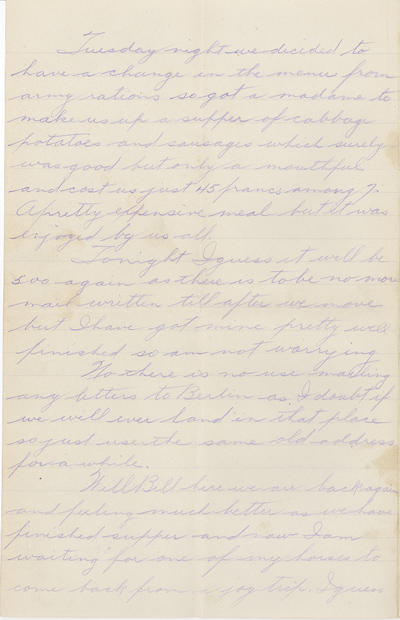 Tuesday night we decided to
have a change in the menu from
army rations so got a madame to
make us up a supper of cabbage
potatoes and sausages which surely
was good but only a mouthful
and cost us just 45 francs among 7.
A pretty expensive meal but it was
enjoyed by us all.
Tonight I guess it will be
500 again as there is to be no more
mail written till after we move
but I have got mine pretty well
finished so am not worrying
No there is no use mailing
any letters to Berlin as I doubt if
we will ever land in that place
so just use the same old address
for a while.
Well Bell here we are back again
and feeling much better as we have
finished supper and now I am
waiting for one of my horses to
come back from a jog trip. I guess